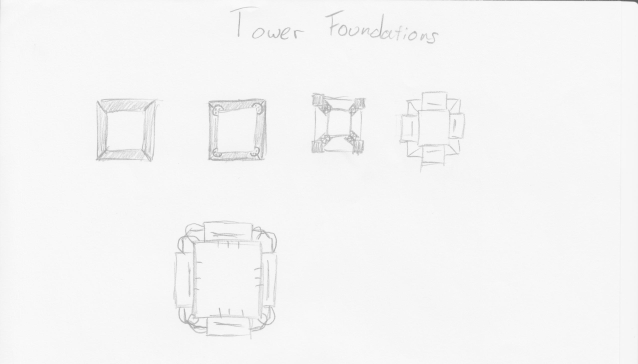 Tower Foundations